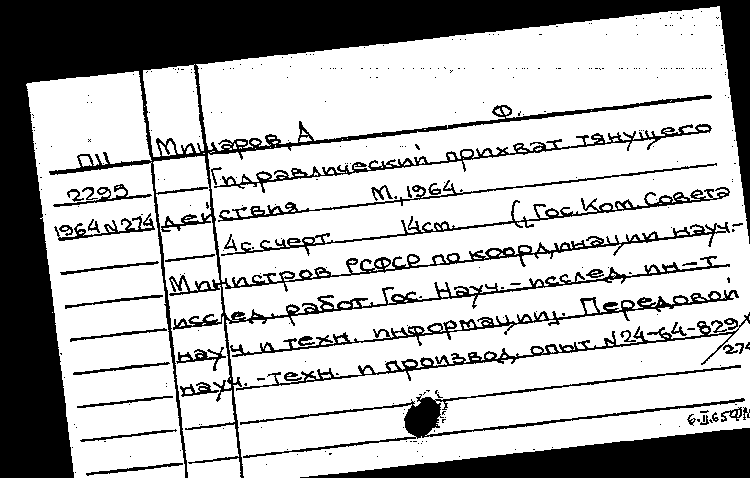 ПП Мишаров, А Ф.
2295 Гидравлический прихват тянущего
1964 N 274 действия. М., 1964.
4 с. с черт. 14 см. (Гос. Ком. Совета
Министров РСФСР по координации науч.-
исслед. работ. Гос. Науч.-исслед. ин-т
науч. и техн. информации. Передовой
науч.-техн. и производ. опыт. N 24-64-829/
274
6.II.65